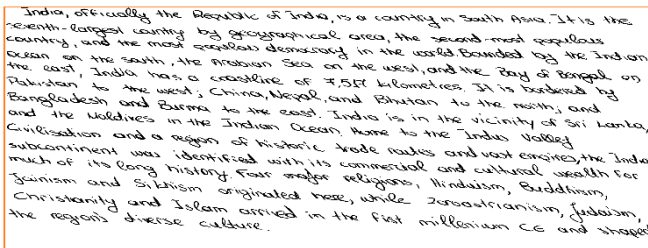 India, officially the Republic of India, is a country in South Asia. It is the
seventh-largest country by geographical area, the second-most populous
country, and the most populous democracy in the world. Bounded by the Indian
Ocean on the south, the Arabian Sea on the west, and the Bay of Bengal on
the east, India has a coastline of 7,517 kilometres. It is bordered by
Pakistan to the west; China, Nepal, and Bhutan to the north; and
Bangladesh and Burma to the east. India is in the vicinity of Sri Lanka,
and the Maldives in the Indian Ocean. Home to the Indus Valley
Civilisation and a region of historic trade routes and vast empires, the India
subcontinent was identified with its commercial and cultural wealth for
much of its long history. Four major religions, Hinduism, Buddhism,
Jainism and Sikhism originated here, while Zoroastrianism, Judaism,
Christianity and Islam arrived in the first millenium CE and shaped
the region's diverse culture.